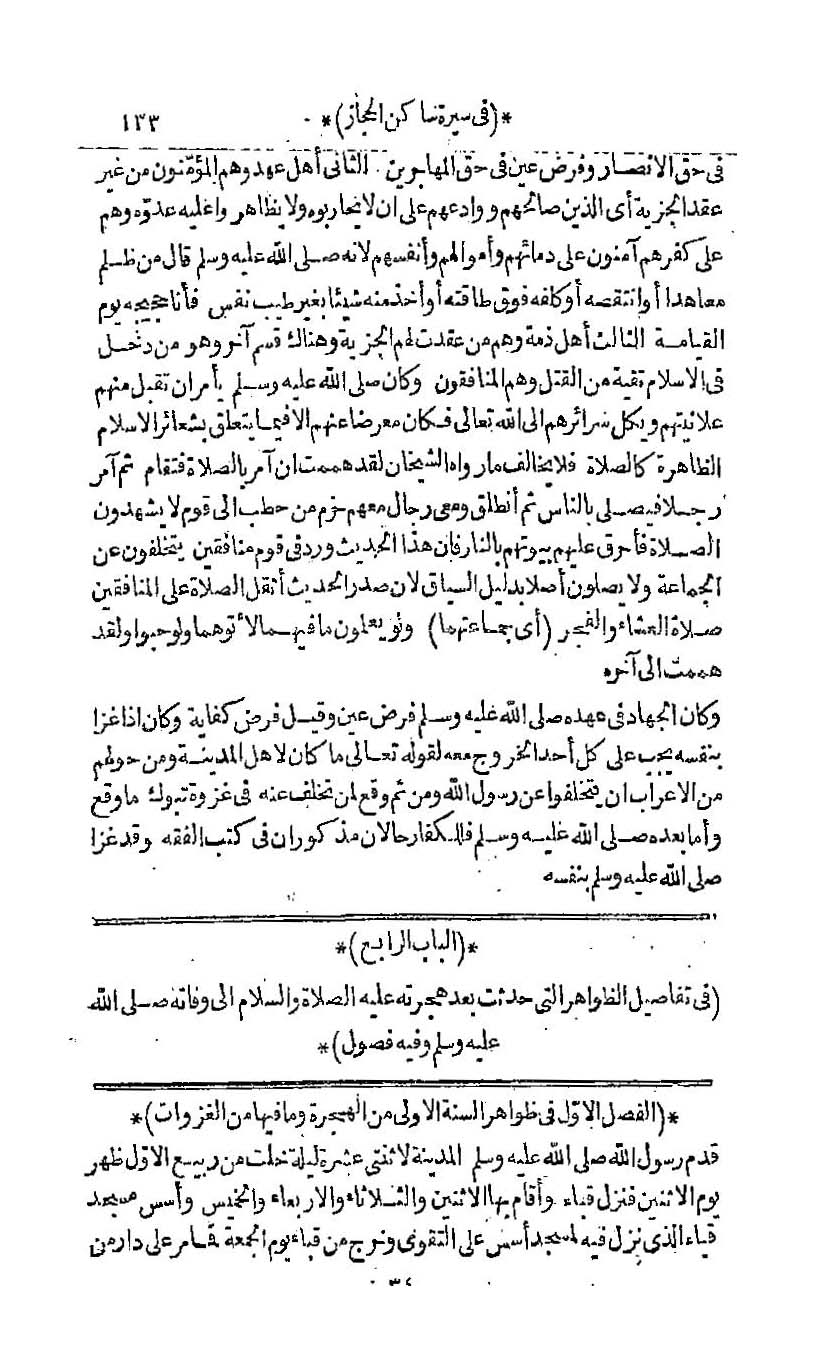 *(فى سيرة ساكن الحجاز)* ١٣٣
فى حق الانصار وفرض عين فى حق المهاجرين . الثانى أهل عهد وهم المؤمنون من غير
عقد الجزية أى الذين صالحهم ووادعهم على ان لا يحاربوه ولا يظاهروا عليه عدوّه وهم
على كفرهم آمنون على دمائهم وأموالهم وأنفسهم لانه صلى الله عليه وسلم قال من ظلم
معاهدا أو انتقصه أو كلفه فوق طاقته أو أخذ منه شيئا بغير طيب نفس فأنا حجيجه يوم
القيامة الثالث أهل ذمة وهم من عقدت لهم الجزية وهناك قسم آخر وهو من دخل
فى الاسلام تقية من القتل وهم المنافقون وكان صلى الله عليه وسلم يأمر ان تقبل منهم
علانيتهم ويكل سرائرهم الى الله تعالى فكان معرضا عنهم الا فيما يتعلق بشعائر الاسلام
الظاهرة كالصلاة فلا يخالف ما رواه الشيخان لقد هممت ان آمر بالصلاة فتقام ثم آمر
رجلا فيصلى بالناس ثم أنطلق ومعى رجال معهم حزم من حطب الى قوم لا يشهدون
الصلاة فأحرق عليهم بيوتهم بالنار فان هذا الحديث ورد فى قوم منافقين يتخلفون عن
الجماعة ولا يصلون أصلا بدليل السياق لان صدر الحديث أثقل الصلاة على المنافقين
صلاة العشاء والفجر (أى جماعتهما) ولو يعلمون ما فيهما لأتوهما ولو حبوا ولقد
هممت الى آخره
وكان الجهاد فى عهده صلى الله عليه وسلم فرض عين وقيل فرض كفاية وكان اذا غزا
بنفسه يجب على كل أحد الخروج معه لقوله تعالى ما كان لاهل المدينة ومن حولهم
من الاعراب ان يتخلفوا عن رسول الله ومن ثم وقع لمن تخلف عنه فى غزوة تبوك ما وقع
وأما بعده صلى الله عليه وسلم فللكفار حالان مذكوران فى كتب الفقه وقد غزا
صلى الله عليه وسلم بنفسه
*(الباب الرابع)*
(فى تفاصيل الظواهر التى حدثت بعد هجرته عليه الصلاة والسلام الى وفاته صلى الله
عليه وسلم وفيه فصول)*
*(الفصل الاوّل فى ظواهر السنة الاولى من الهجرة وما فيها من الغزوات)*
قدم رسول الله صلى الله عليه وسلم المدينة لاثنتى عشرة ليلة خلت من ربيع الاوّل ظهر
يوم الاثنين فنزل قباء وأقام بها الاثنين والثلاثاء والاربعاء والخميس وأسس مسجد
قباء الذى نزل فيه لمسجد أسس على التقوى وخرج من قباء يوم الجمعة فمر على دار من